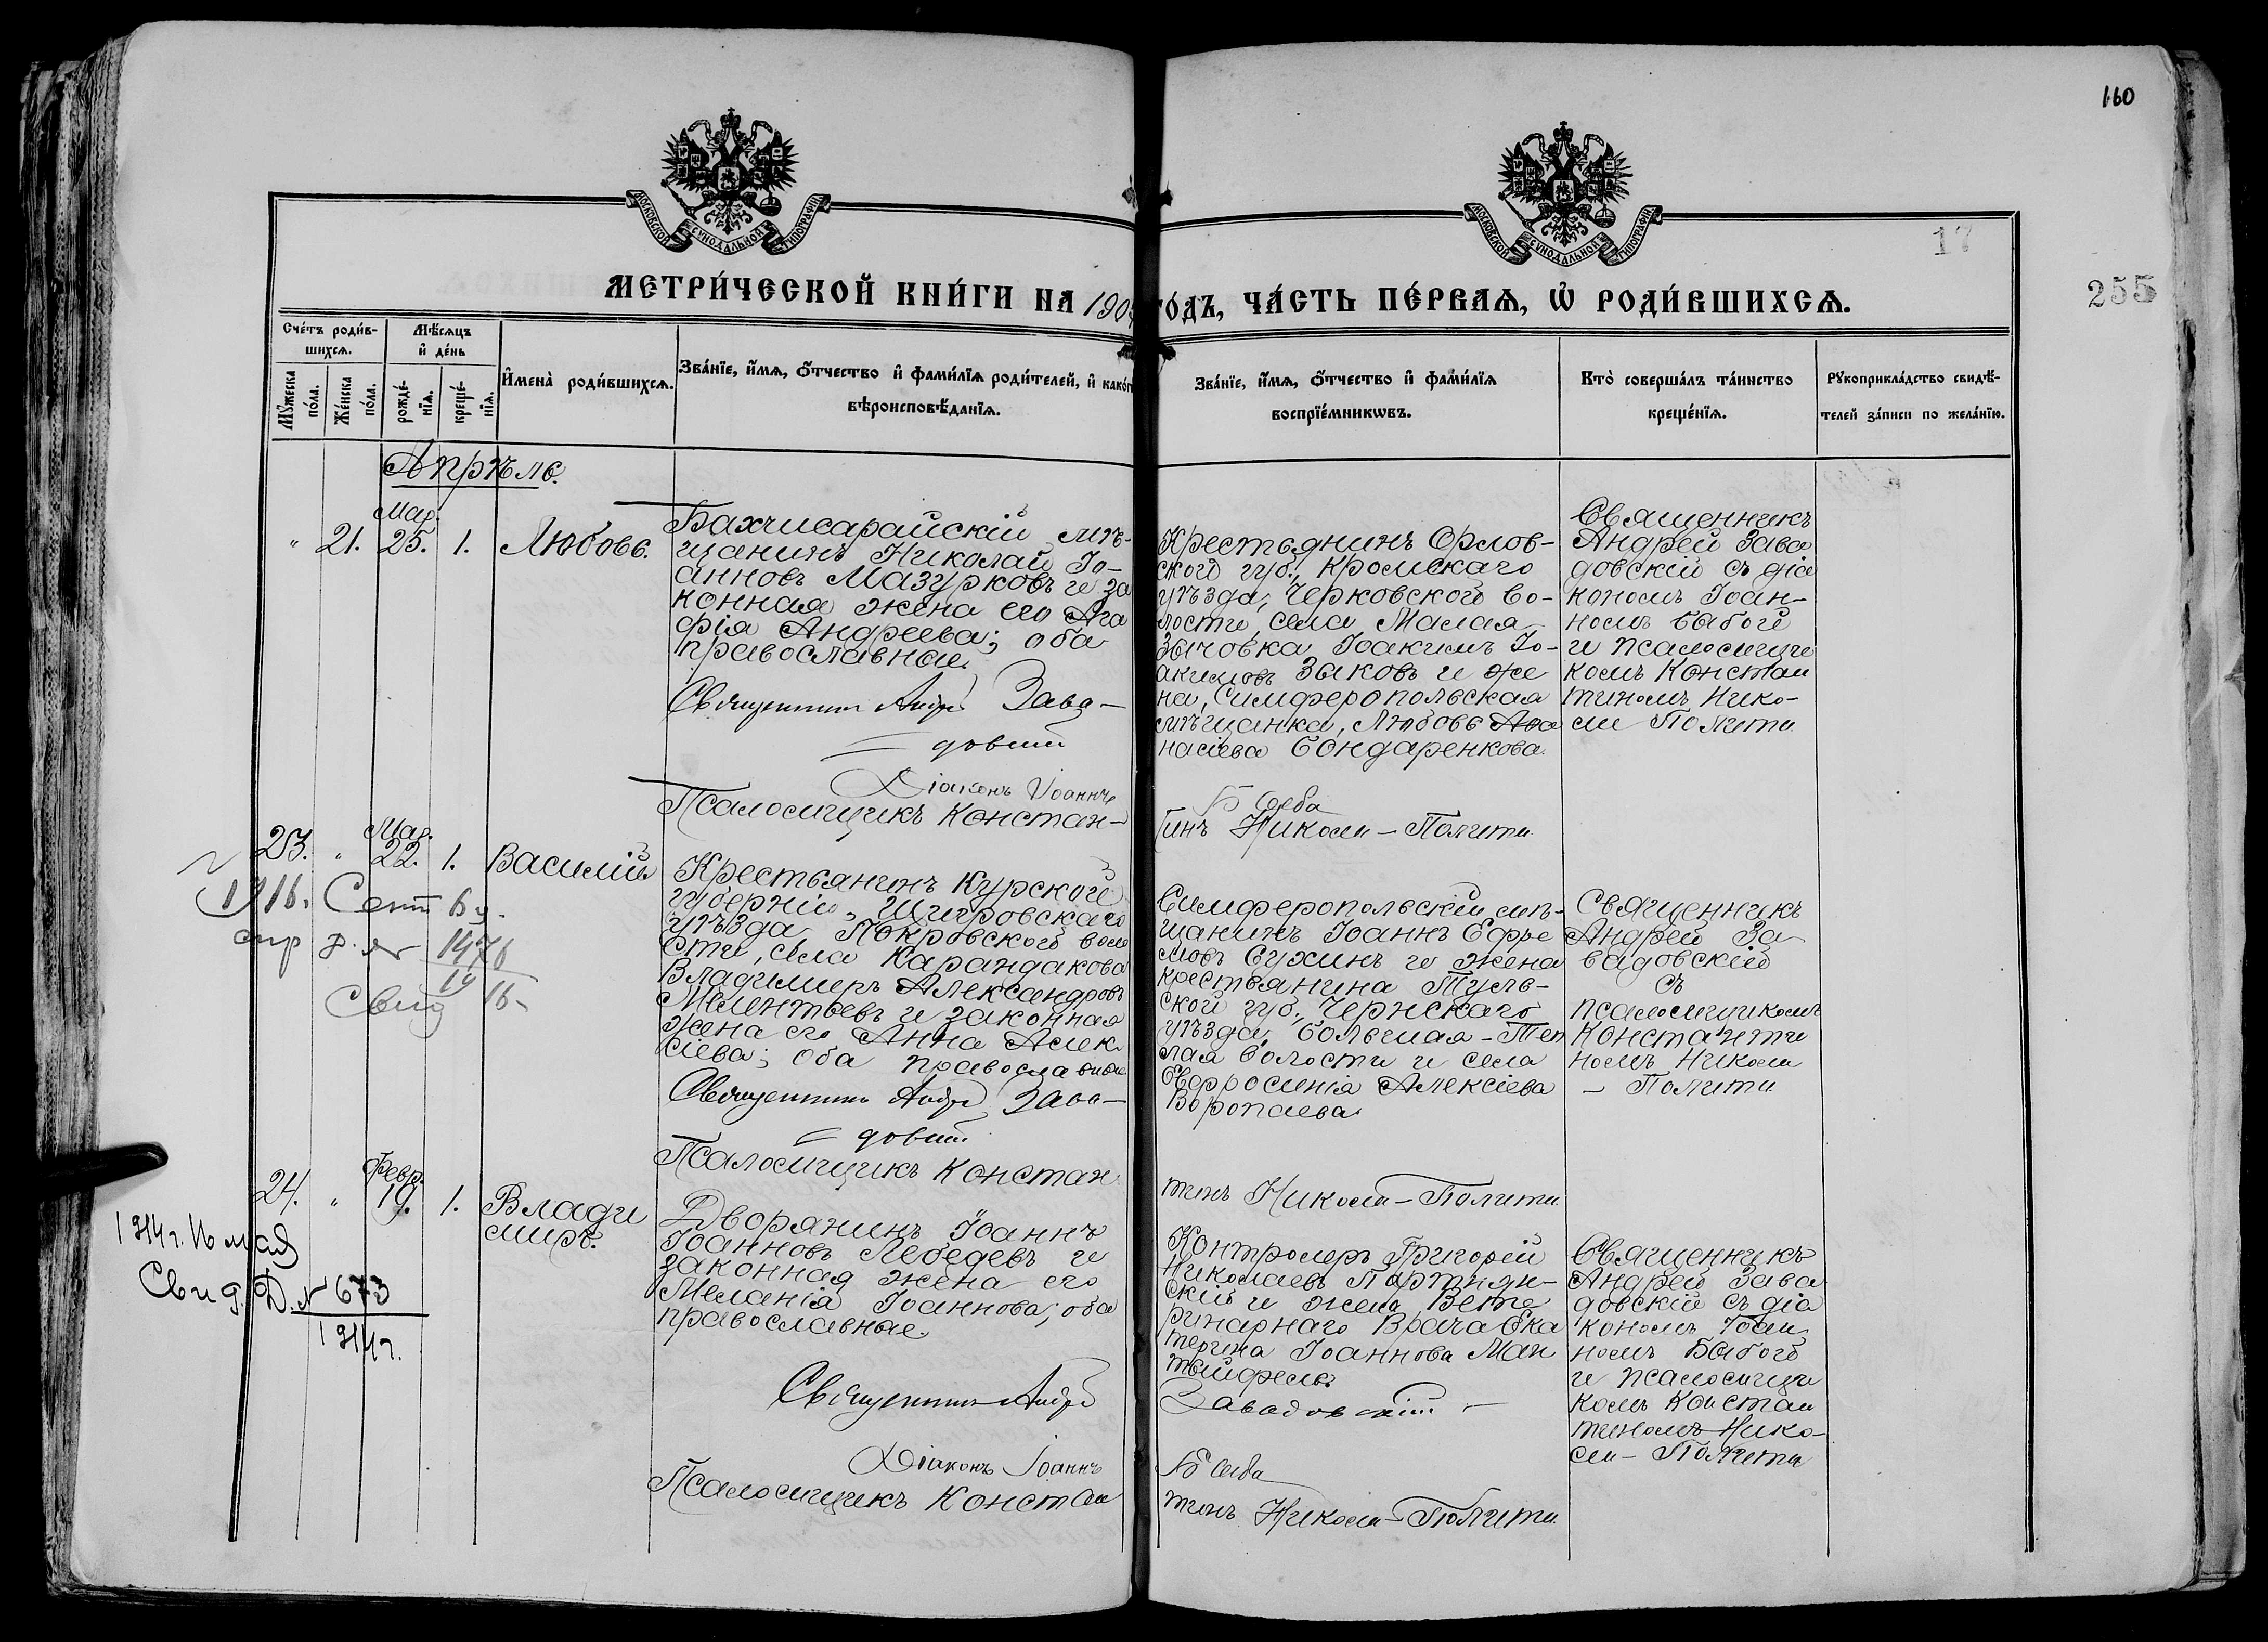 160
17
255
МОСКОВСКОЙ СѴНОДАЛЬНОЙ ТИПОГРАФІИ
МОСКОВСКОЙ СѴНОДАЛЬНОЙ ТИПОГРАФІИ
МЕТРИ́ЧЕСКОЙ КНИ́ГИ НА 190
ГО́ДЪ, ЧА́СТЬ ПЕ́РВАѦ, Ѡ҆ РОДИ́ВШИХСѦ.
Сче́тъ роди́в-
шихсѧ.
Мѣ́сѧцъ
и҆ де́нь
Мꙋ́жеска
по́ла.
Же́нска
по́ла.
рожде́-
нїѧ.
креще́-
нїѧ.
И҆мена̀ роди́вшихсѧ.
Зва́нїе, и҆́мѧ, ѻ҆́тчество и҆ фами́лїѧ роди́телей, и҆ како́г
вѣроисповѣ́данїѧ.
Зва́нїе, и҆́мѧ, ѻ҆́тчество и҆ фами́лїѧ
воспрїе́мникѡвъ.
Кто̀ соверша́лъ та́инство
креще́нїѧ.
Рꙋкоприкла́дство свидѣ́-
телей за́писи по жела́нїю.
Апрѣль.
Мар.
" 21. 25. 1. Любовь.
Бахчисарайскій мѣ-
щанинъ Николай Іо-
анновъ Мазурковъ и за
конная жена его Ага
фія Андреева; оба
православные.
Священникъ Андрей Зава-
довскій
Діаконъ Іоаннъ
Псаломщикъ Констан-
Крестьянинъ Орлов-
ской губ., Кромскаго
уѣзда, Черковской во-
лости, села Малая
Зыковка Іоакимъ Іо-
акимовъ Зыковъ и же
на, Симферопольская
мѣщанка, Любовь Аѳа
насіева Бондаренкова.
тинъ Николи-Полити
Священникъ
Андрей Зава
довскій съ діа
кономъ Іоан-
номъ
и псаломщи
комъ Констан
тиномъ Нико-
ли Полити
Мар.
23. " 22. 1. Василій
1916. Сент 6
1476
16
Свид
Крестьянинъ Курской
губерніи, Щигровскаго
уѣзда Покровской воло
сти, села Карандакова
Владимиръ Александровъ
Мелентьевъ и законная
жена его Анна Алек
сіева; оба православные
Священникъ Андрей Зава-
довскій
Псаломщикъ Констан
Симферопольскій мѣ-
щанинъ Іоаннъ Ефре
мовъ Сухинъ и жена
крестьянина Туль-
ской губ., Чернскаго
уѣзда, Большая-Теп
лая волости и села
Евфросинія Алексіева
Воропаева.
тинъ Николи-Полити
Священникъ
Андрей За
вадовскій
съ
псаломщикомъ
Константи
номъ Николи
- Полити
Февр.
24. " 19. 1. Влади
миръ.
1914 г. 16 мая
Свид. Д. № 673
1914 г.
Дворянинъ Іоаннъ
Іоанновъ Лебедевъ и
законная жена его
Меланія Іоаннова; оба
православные.
Священникъ Андрей
Діаконъ Іоаннъ
Псаломщикъ Констан
Контролеръ Григорій
Николаевъ Партнян-
скій и жена Вете
ринарнаго Врача Ека
терина Іоаннова Ман
тейфель.
Завадовскій
тинъ Николи-Полити
Священникъ
Андрей Зава
довскій съ діа
кономъ Іоан
номъ
и псаломщи
комъ Констан
тиномъ Нико-
ли - Полити